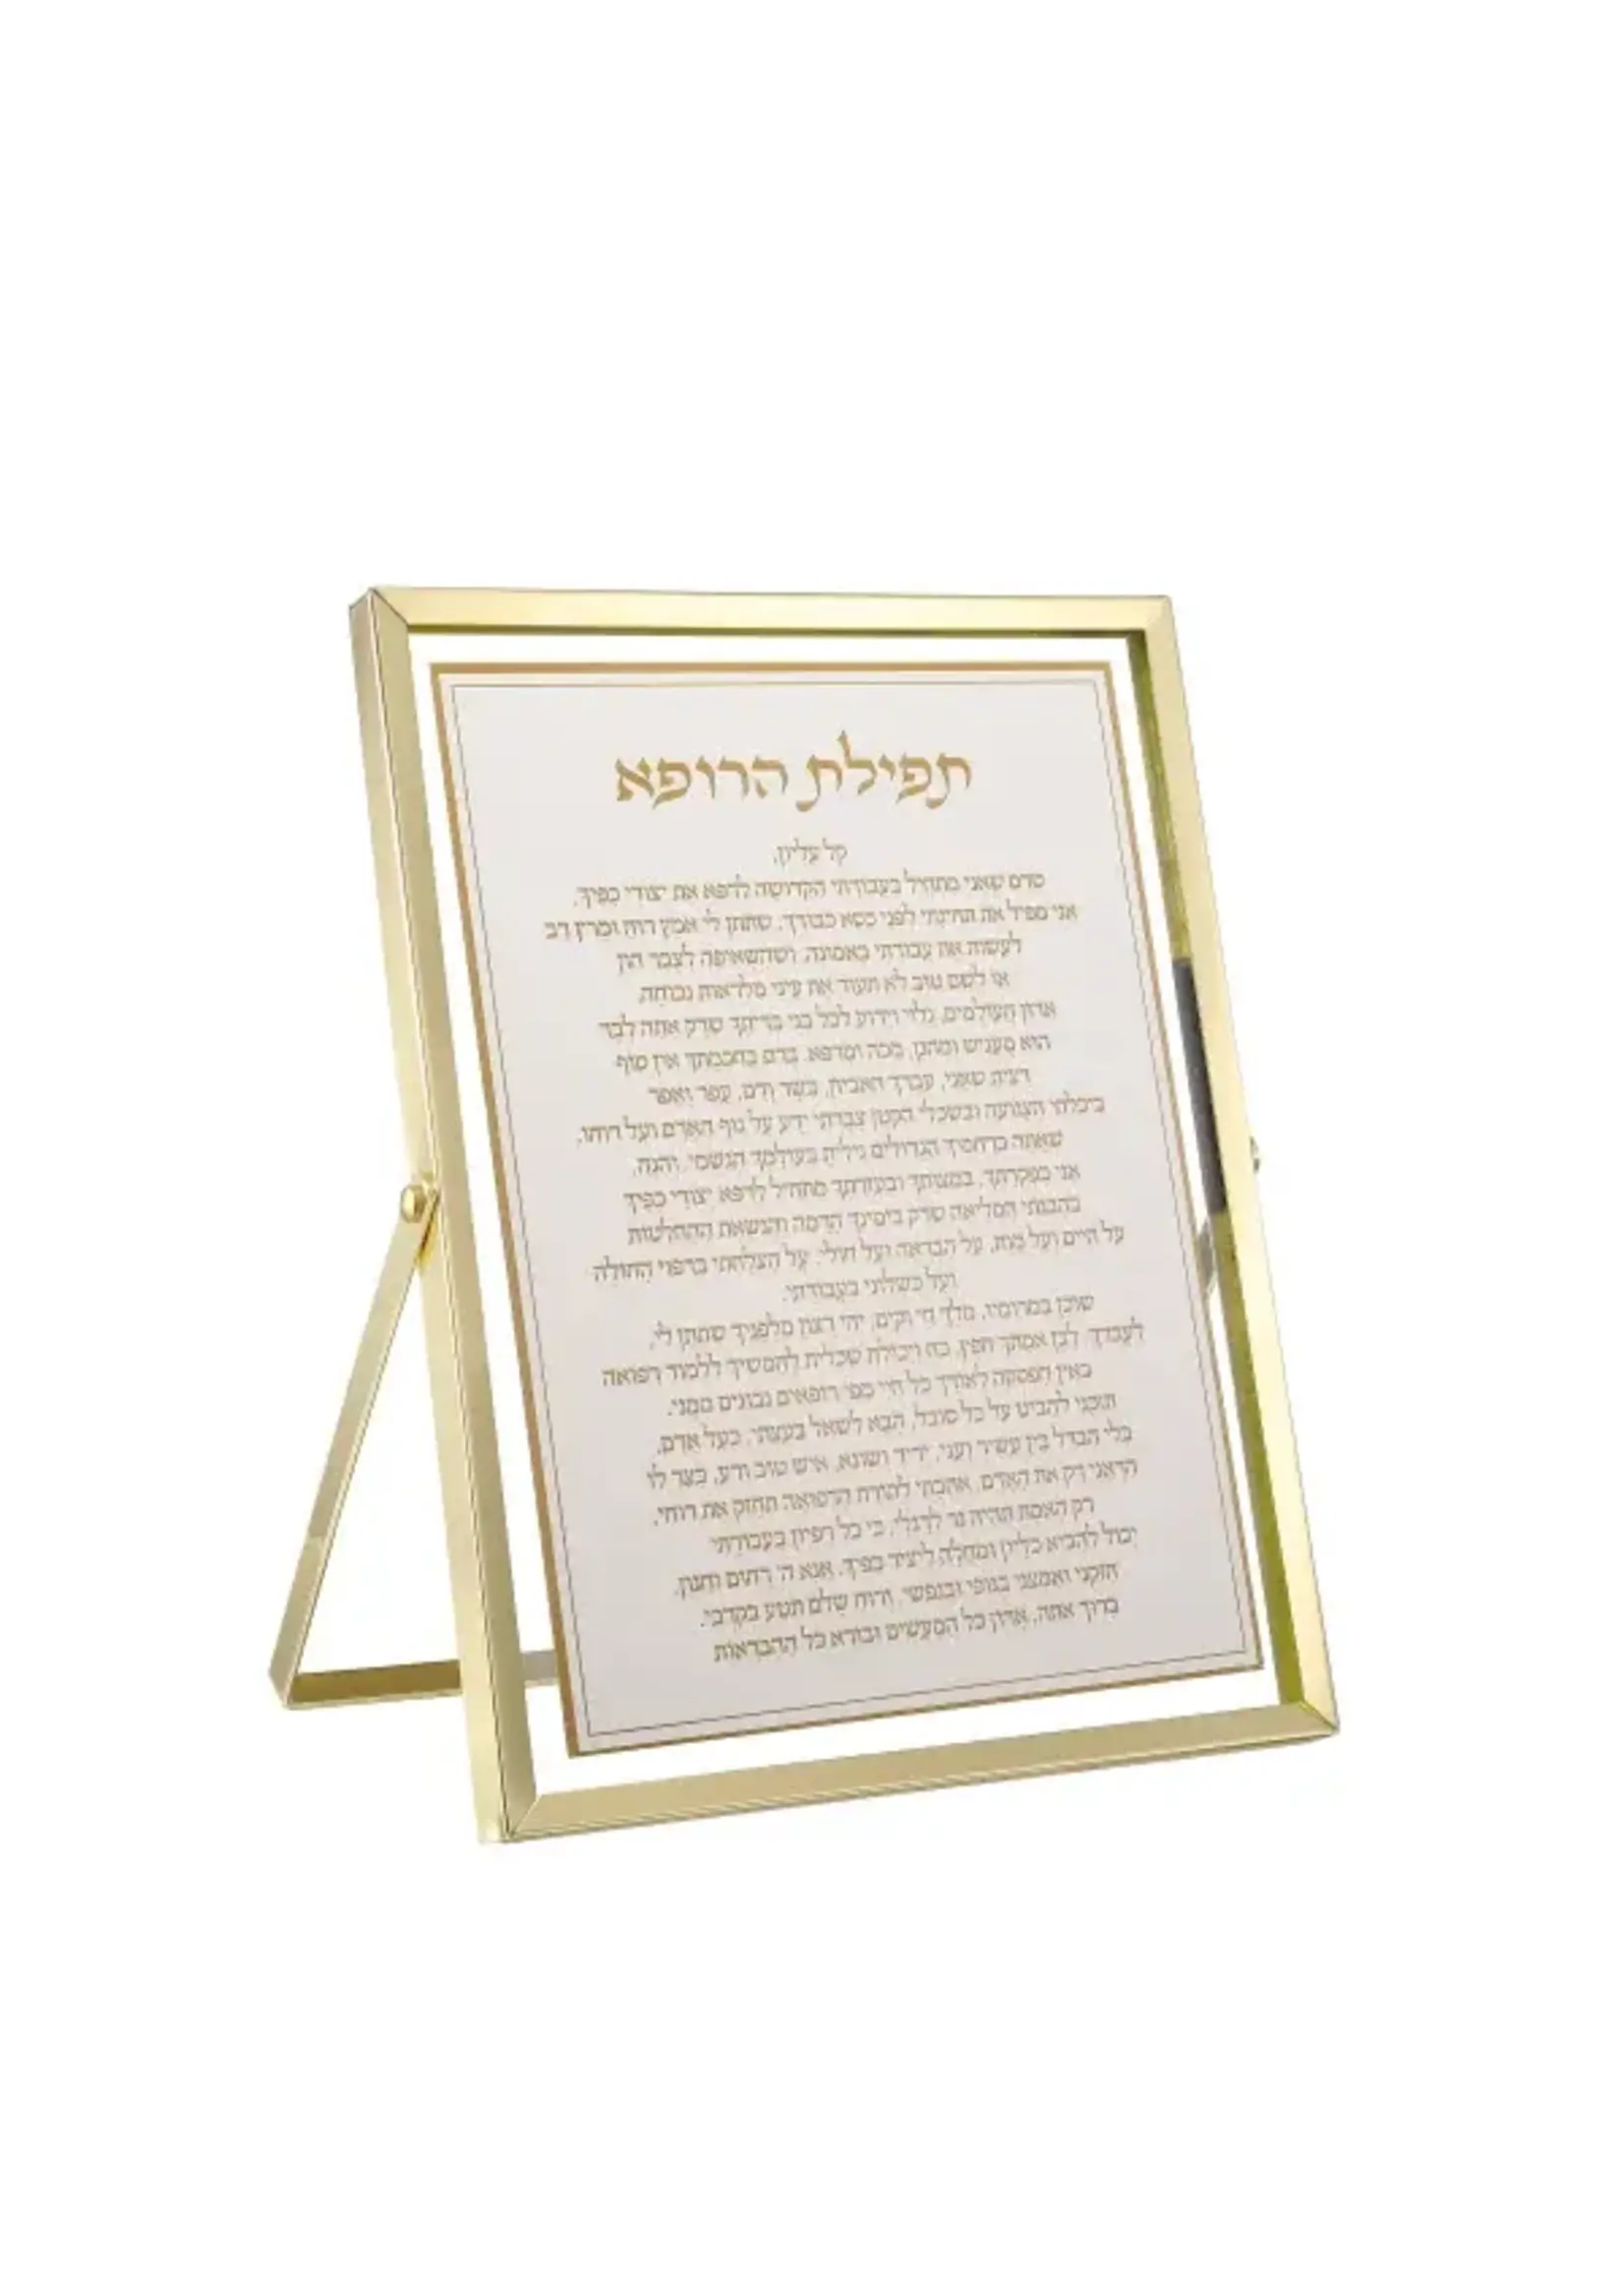 תפילת הרופא
קל עליון,
טרם שאני מתחיל בעבודתי הקדושה לרפא את יצורי כפיך,
אני מפיל את תחינתי לפני כסא כבודך, שתתן לי אמץ רוח ומרץ רב
לעשות את עבודתי באמונה, ושהשאיפה לצבר הון
או לשם טוב לא תעור את עיני מלראות נכוחה.
אדון העולמים, גלוי וידוע לכל בני בריתך שרק אתה לבד
הוא מעניש ומהגן, מכה ומרפא. ברם בחכמתך אין סוף
רצית שאני, עבדך האביון, בשר ודם, עפר ואפר
ביכלתי הצנועה ובשכלי הקטן צברתי ידע על גוף האדם ועל רוחו,
שאתה ברחמיך הגדולים גילית בעולמך הגשמי. והנה,
אני כפקדתך, במצותך ובעזרתך מתחיל לרפא יצורי כפיך
בהבנתי המליאה שרק בימינך הרמה והנשאת ההחלטות
על חיים ועל מות, על הבראה ועל חולי, על הצלחתי ברפוי החולה
ועל כשלוני בעבודתי.
שוכן במרומיו, מלך חי וקים, יהי רצון מלפניך שתתן לי,
לעבדך לבן אמתך חפץ, כח ויכולת שכלית להמשיך ללמוד רפואה
באין הפסקה לאורך כל חיי מפי רופאים נבונים ממני.
תזכני להביט על כל סובל, הבא לשאל בעצתי, כעל אדם,
בלי הבדל בין עשיר ועני, ידיד ושונא, איש טוב ורע, בצר לו
הראני רק את האדם. אהבתי לתורת הרפואה תחזק את רוחי,
רק האמת תהיה נר לרגלי, כי כל רפיון בעבודתי
יכול להביא כליון ומחלה ליציר כפיך. אנא ה' רחום וחנון,
חזקני ואמצני בגופי ובנפשי, ורוח שלם תטע בקרבי.
ברוך אתה, אדון כל המעשים ובורא כל ההבראות